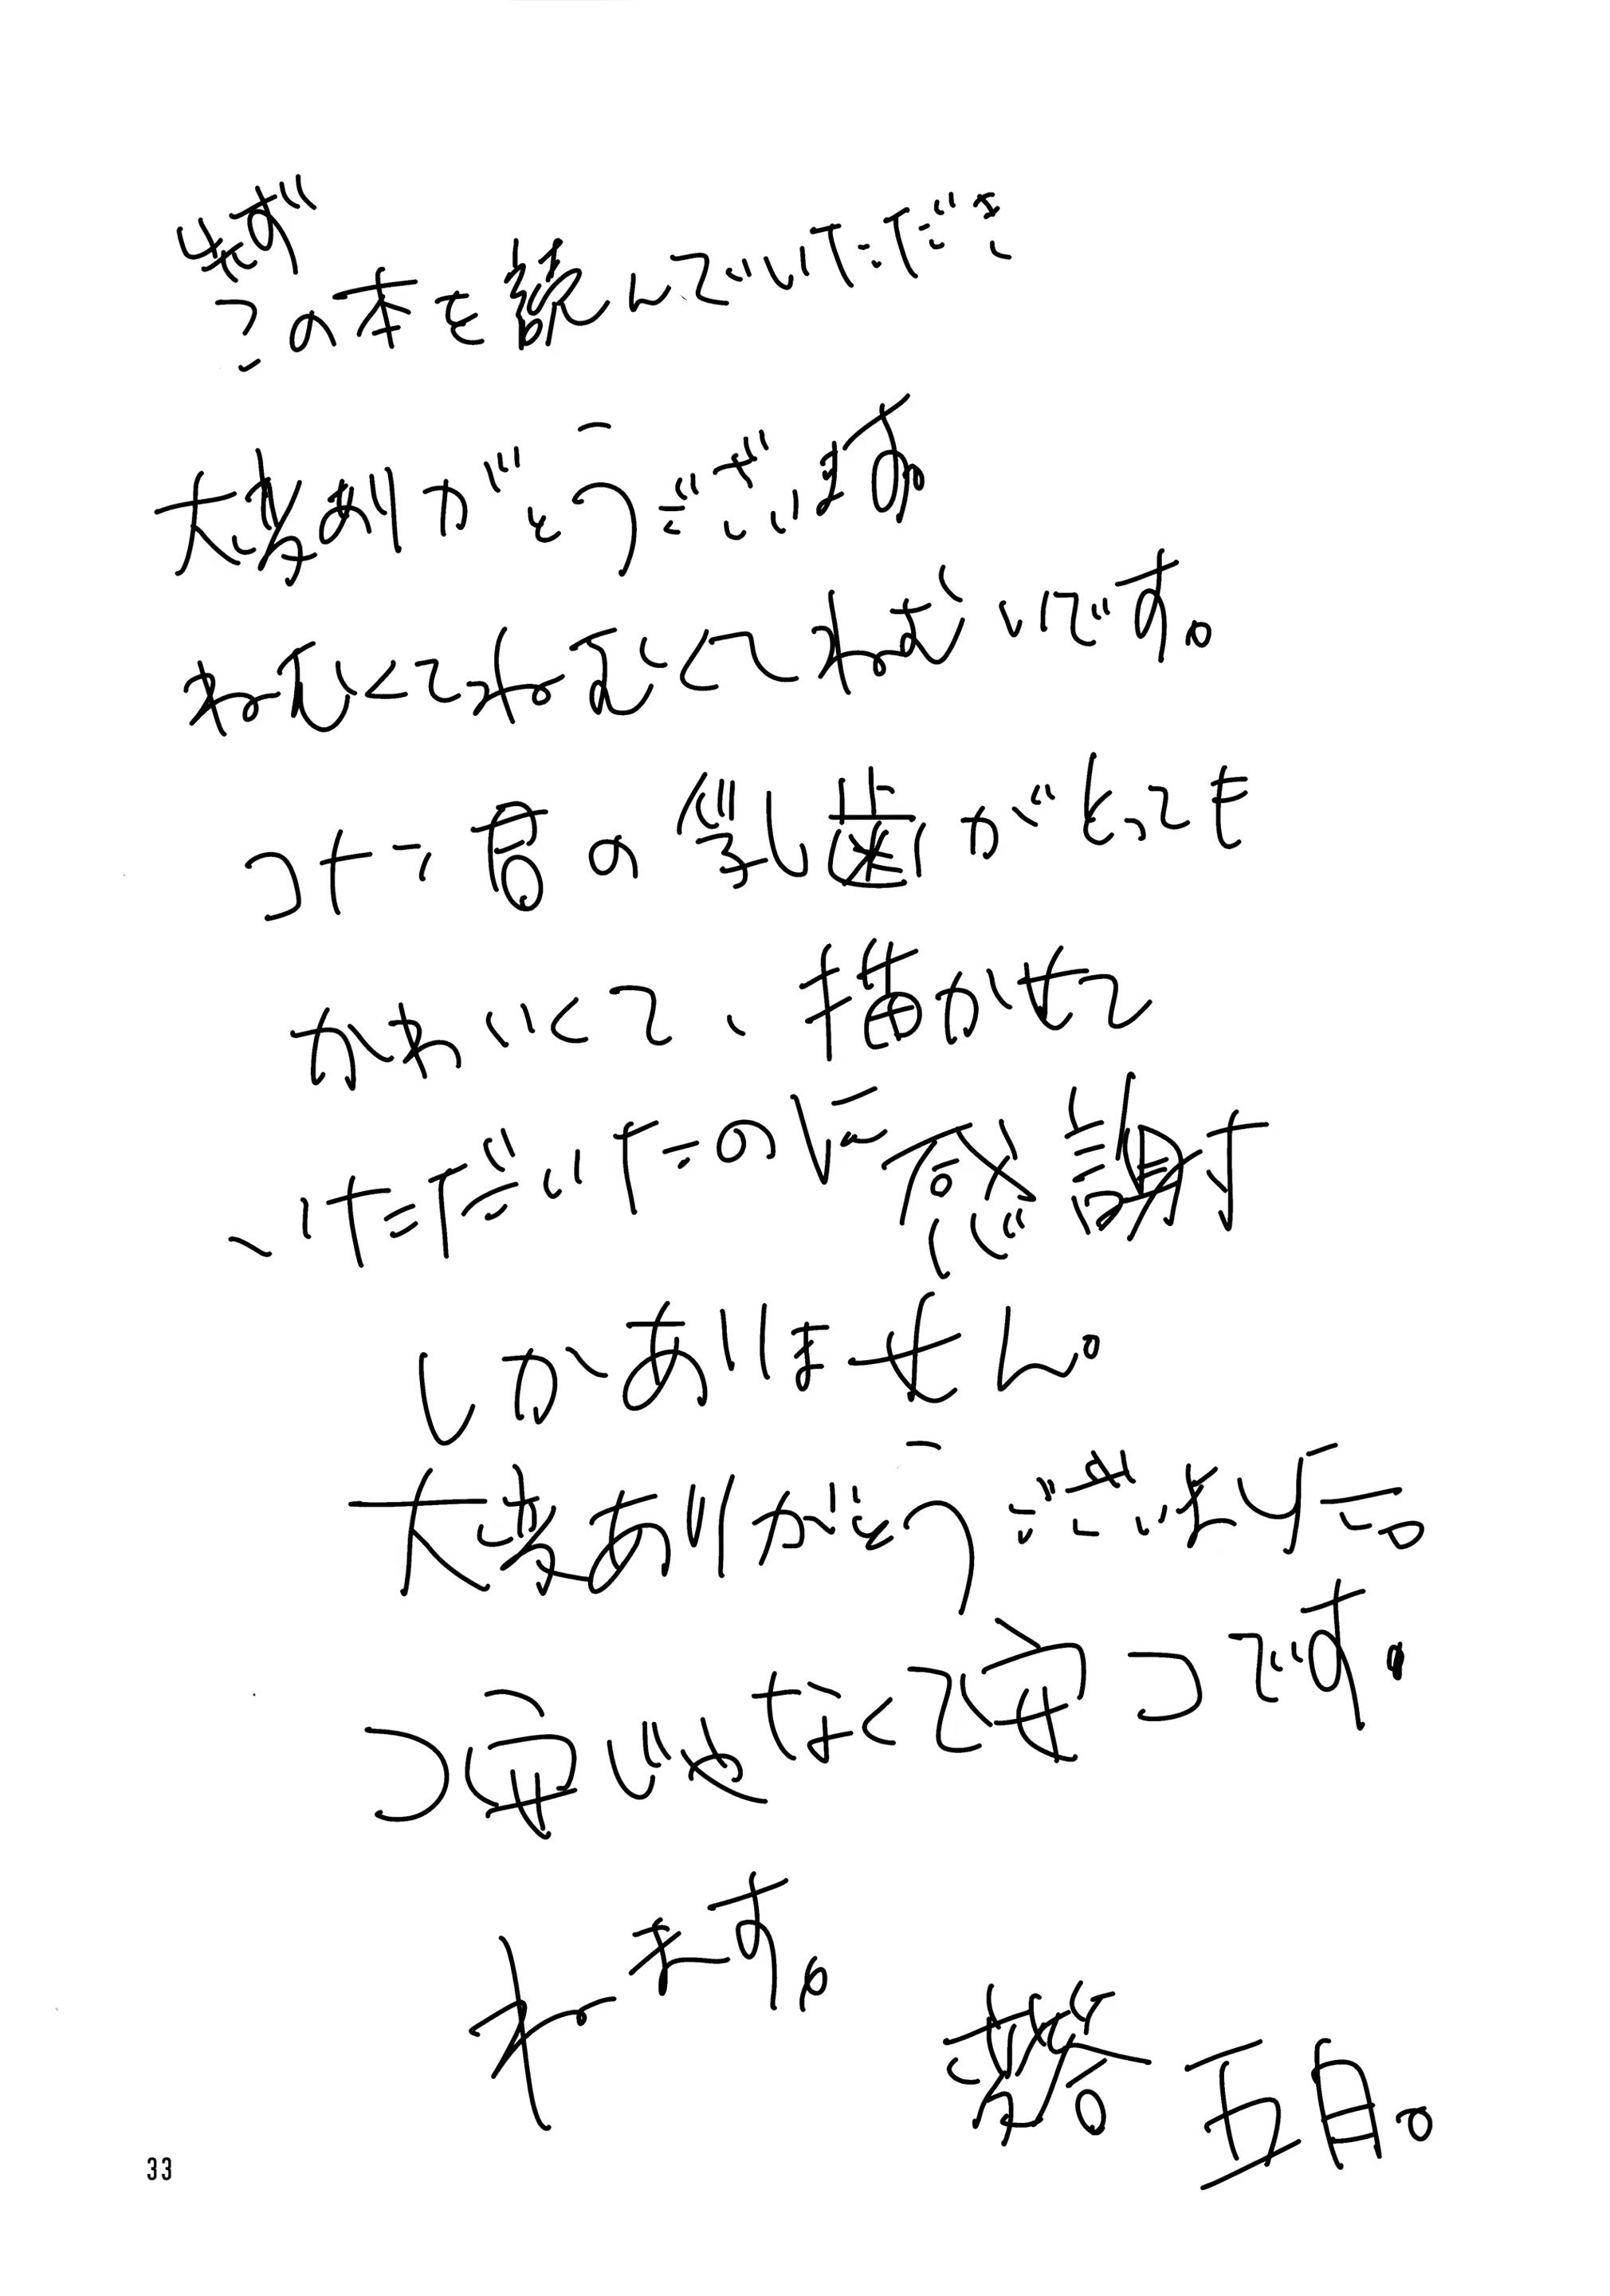 まず
この本を読んでいただき
大変ありがとうございます。
ねむくてねむくてねむいです。
コナン君の乳歯がとっても
かわいくて、描かせて
いただいたのに感謝
しかありません。
大変ありがとうございました。
つ安じゃなくて安コです。
ねます。
五月。
33